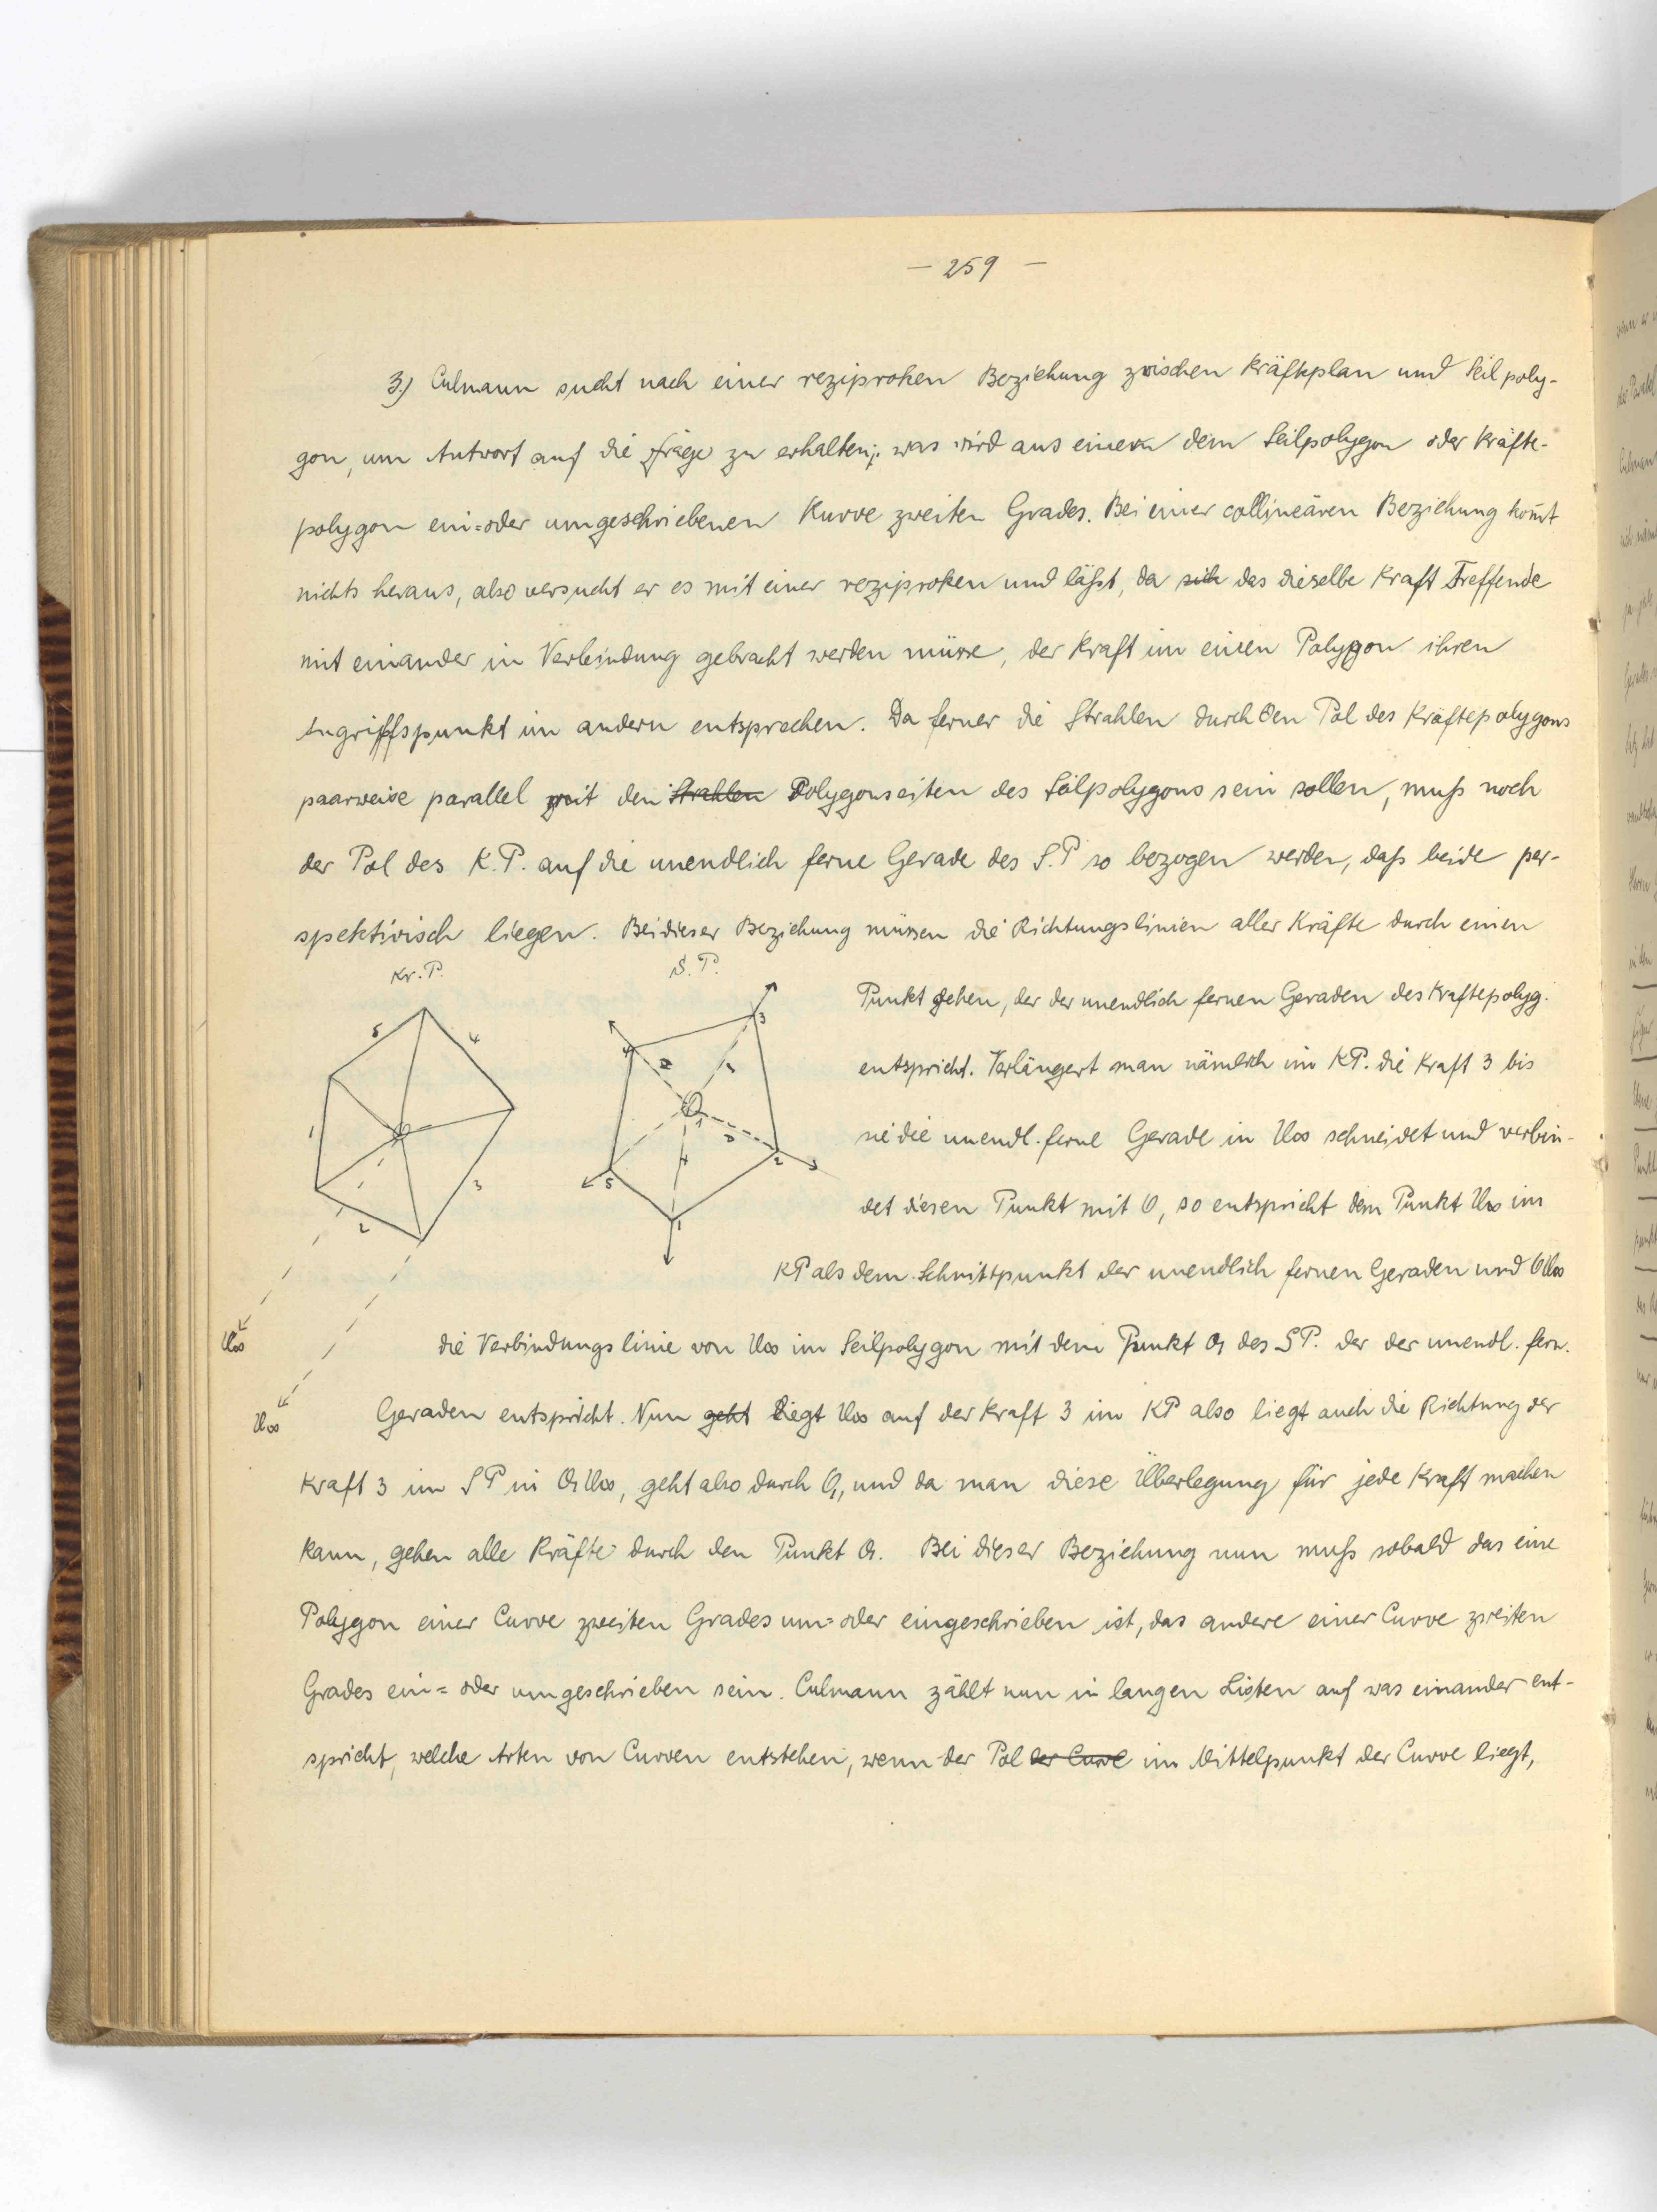 — 259 —
3.) Culmann sucht nach einer reziproken Beziehung zwischen Kräfteplan und Seilpoly-
gon, um Antwort auf die Frage zu erhalten; was wird aus einer dem Seilpolygon oder Kräfte-
polygon ein= oder umgeschriebenen Kurve zweiten Grades. Bei einer collineären Beziehung kom̄t
nichts heraus, also versucht er es mit einer reziproken und läßt, da sich das dieselbe Kraft Treffende
mit einander in Verbindung gebracht werden müsse, der Kraft im einen Polygon ihren
Angriffspunkt im andern entsprechen. Da ferner die Strahlen durch den Pol des Kräftepolygons
paarweise parallel mit den Strahlen Polygonseiten des Seilpolygons sein sollen, muß noch
der Pol des K.P. auf die unendlich ferne Gerade des S.P so bezogen werden, daß beide per-
spektivisch liegen. Bei dieser Beziehung müssen die Richtungslinien aller Kräfte durch einen
Kr. P.
S. P.
Punkt gehen, der der unendlich fernen Geraden des Kraftepolyg.
entspricht. Verlängert man nämlich im KP. die Kraft 3 bis
sie die unendl. ferne Gerade in U∞ schneidet und verbin-
det diesen Punkt mit O, so entspricht dem Punkt U∞ im
KP als dem Schnittpunkt der unendlich fernen Geraden und OU∞
die Verbindungslinie von U∞ im Seilpolygon mit dem Punkt O₁ des SP. der der unendl. fern.
Geraden entspricht. Nun geht liegt U∞ auf der Kraft 3 im KP also liegt auch die Richtung der
Kraft 3 im SP in O₁U∞, geht also durch O₁, und da man diese Überlegung für jede Kraft machen
kann, gehen alle Kräfte durch den Punkt O₁. Bei dieser Beziehung nun muß sobald das eine
Polygon einer Curve zweiten Grades um= oder eingeschrieben ist, das andere einer Curve zweiten
Grades ein= oder umgeschrieben sein. Culmann zählt nun in langen Listen auf was einander ent-
spricht, welche Arten von Curven entstehen, wenn der Pol der Curve im Mittelpunkt der Curve liegt,
5
4
1
O
3
2
U∞
U∞
4
3
2
O₁
3
2
4
5
1